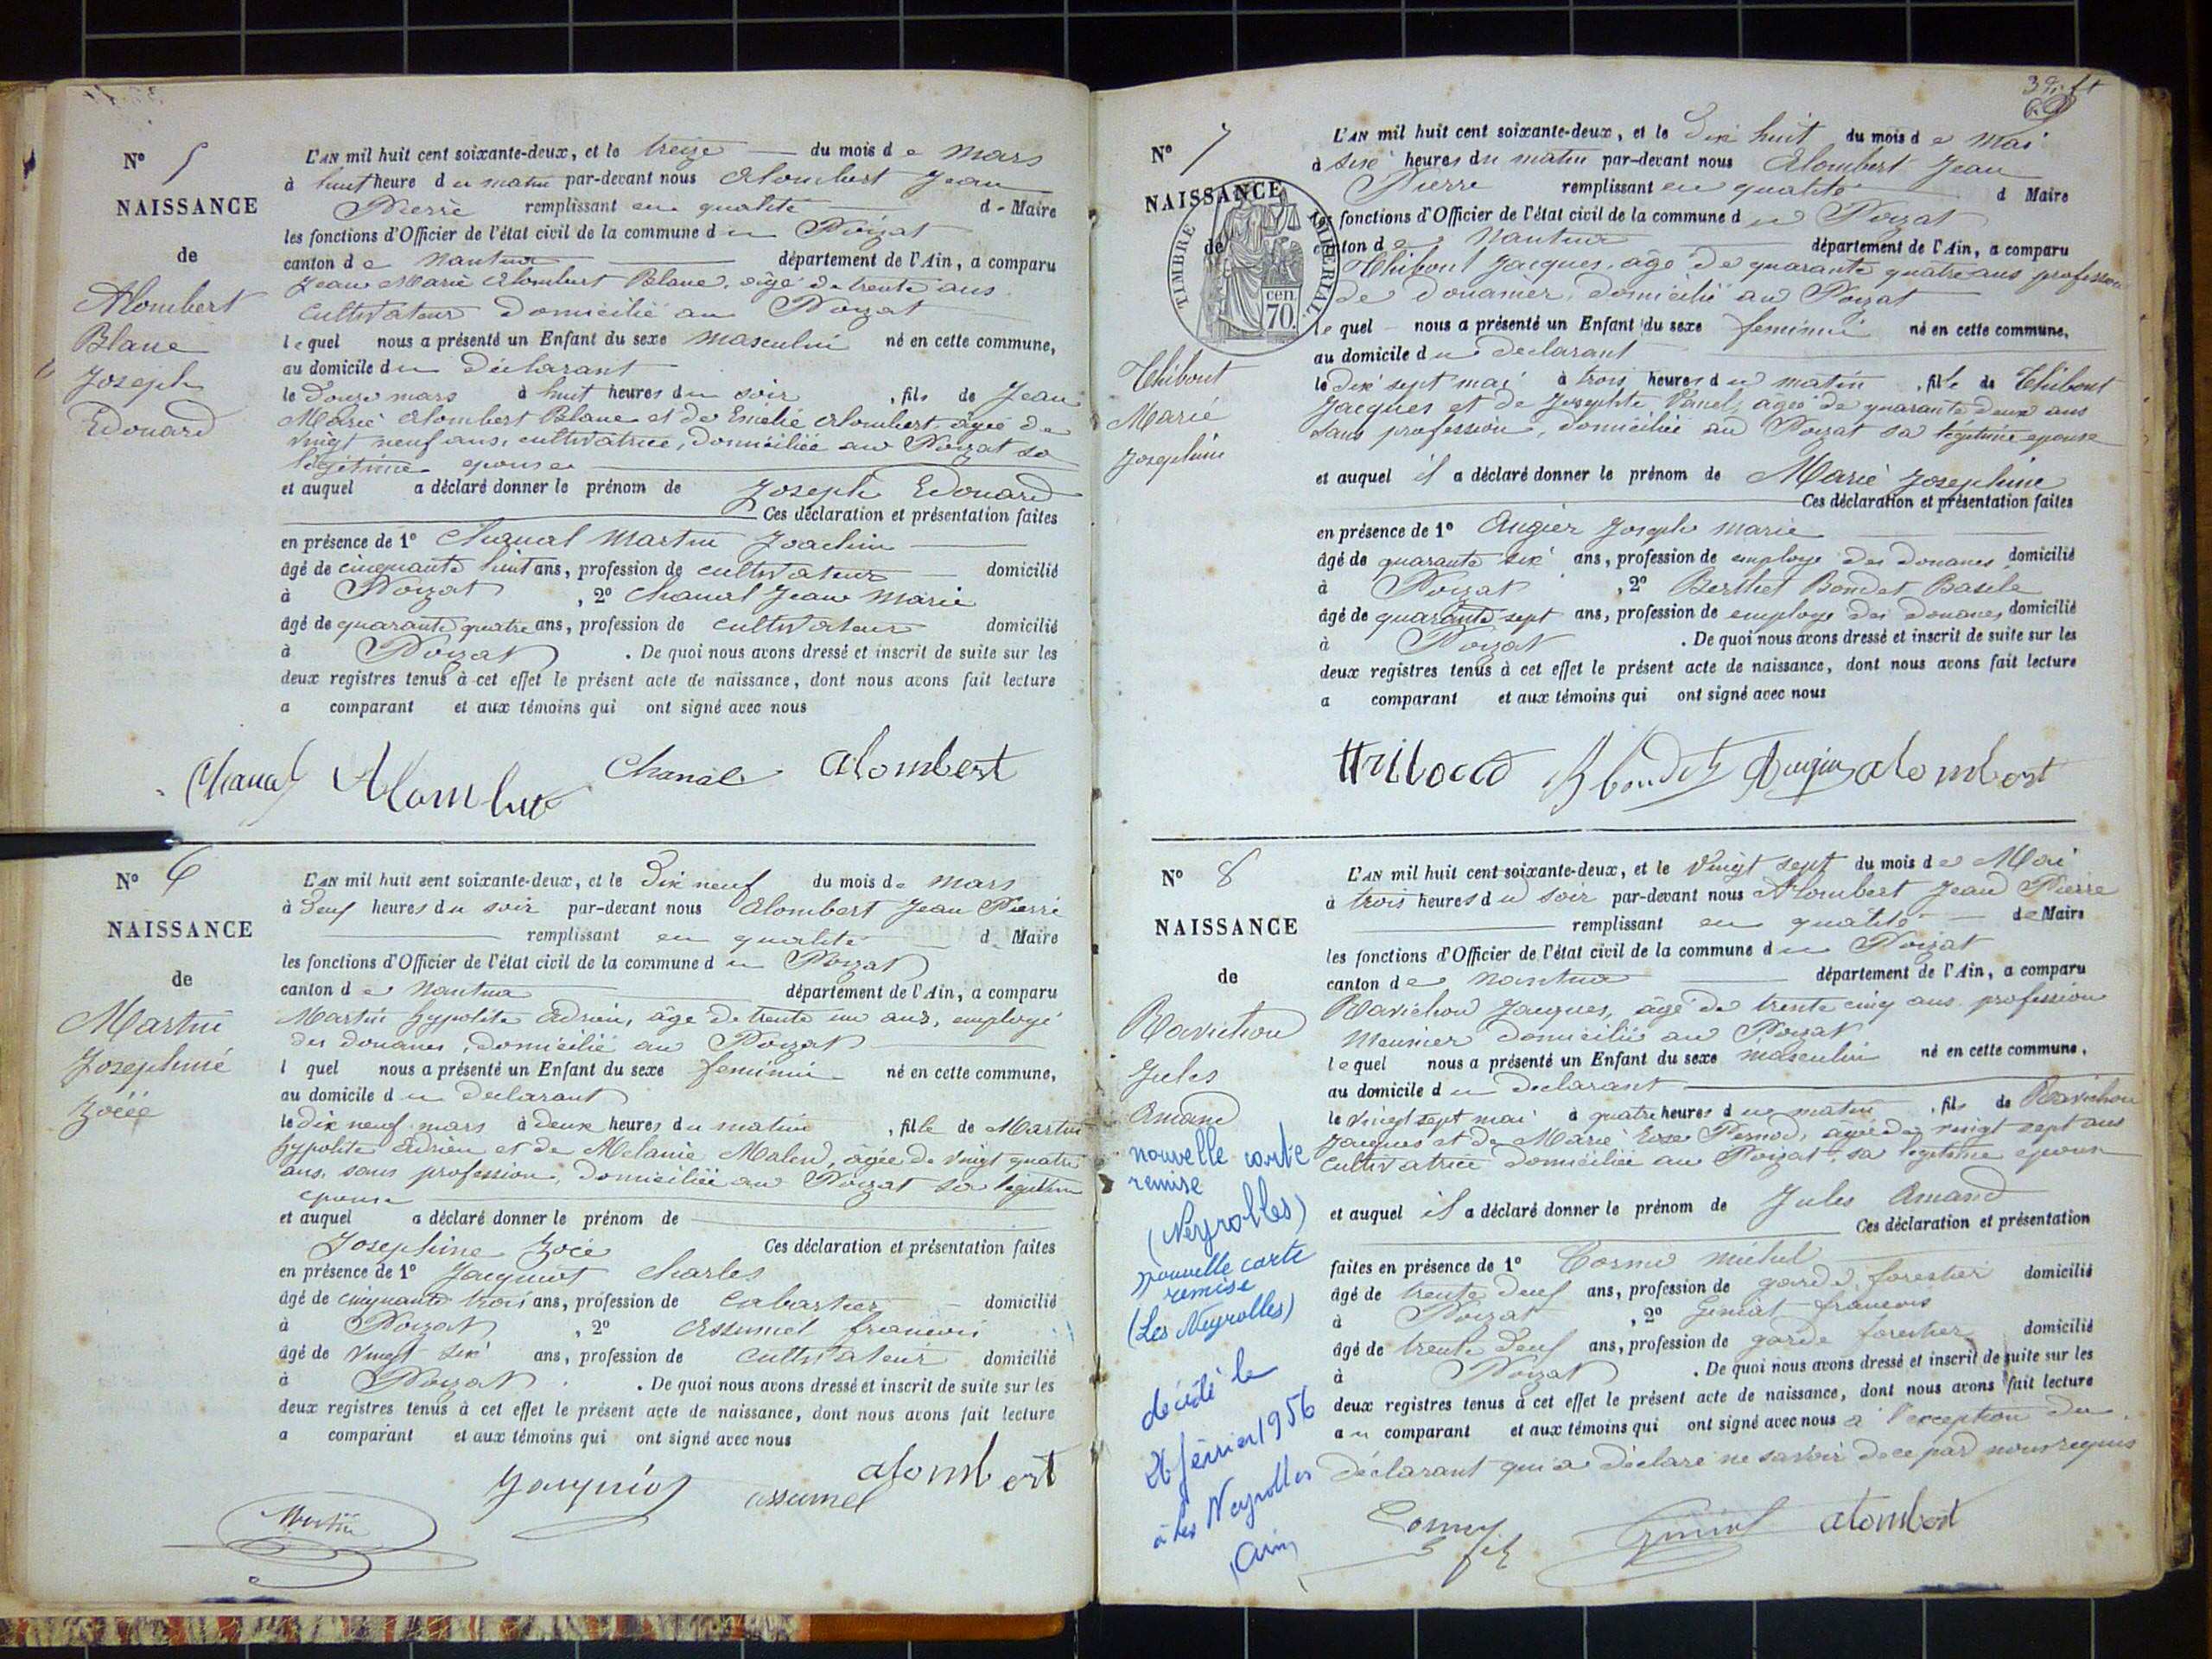 N° 5
NAISSANCE
de
Alombert
Blanc
Joseph
Edouard
L'AN mil huit cent soixante-deux, et le treize du mois de mars
à huit heure du matin par-devant nous Alombert Jean
Pierre remplissant en qualité de Maire
les fonctions d'Officier de l'état civil de la commune du Poizat
canton de Nantua département de l'Ain, a comparu
Jean Marie Alombert Blanc, âgé de trente ans
Cultivateur domicilié au Poizat
lequel nous a présenté un Enfant du sexe masculin né en cette commune,
au domicile du déclarant
le douze mars à huit heures du soir, fils de Jean
Marie Alombert Blanc et de Emelie Alombert, âgée de
vingt neuf ans, cultivatrice, domiciliée au Poizat sa
légitime epouse
et auquel a déclaré donner le prénom de Joseph Edouard
Ces déclaration et présentation faites
en présence de 1° Chanal Martin Joachim
âgé de cinquante huit ans, profession de cultivateur domicilié
à Poizat, 2° Chanal Jean Marie
âgé de quarante quatre ans, profession de cultivateur domicilié
à Poizat. De quoi nous avons dressé et inscrit de suite sur les
deux registres tenus à cet effet le présent acte de naissance, dont nous avons fait lecture
a comparant et aux témoins qui ont signé avec nous
Chanal Alombert Chanal alombert
N° 6
NAISSANCE
de
Martin
Josephine
Zoée
L'AN mil huit cent soixante-deux, et le dix neuf du mois de mars
à deuf heures du soir par-devant nous Alombert Jean Pierre
remplissant en qualité d Maire
les fonctions d'Officier de l'état civil de la commune du Poizat
canton de Nantua département de l'Ain, a comparu
Martin hyppolite Adrien, âge de trente un ans, employé
des douanes, domicilié au Poizat
l quel nous a présenté un Enfant du sexe feminin né en cette commune,
au domicile du declarant
le dix neuf mars à deux heures du matin, fille de Martin
hyppolite Adrien et de Melanie, âgée de vingt quatre
ans, sans profession, domiciliée au Poizat sa legitime
epouse
et auquel a déclaré donner le prénom de
Josephine Zoée Ces déclaration et présentation faites
en présence de 1° Jacquiot Charles
âgé de cinquante trois ans, profession de cabartier domicilié
à Poizat, 2° Assumel francois
âgé de vingt six ans, profession de cultivateur domicilié
à Poizat. De quoi nous avons dressé et inscrit de suite sur les
deux registres tenus à cet effet le présent acte de naissance, dont nous avons fait lecture
a comparant et aux témoins qui ont signé avec nous
Martin Jacquiot assumel alombert
N° 7
NAISSANCE
de
TIMBRE IMPERIAL
70 cen.
Thibout
Marie
Josephine
L'AN mil huit cent soixante-deux, et le Dix huit du mois de Mai
à six heures du matin par-devant nous Alombert Jean
Pierre remplissant en qualité d Maire
les fonctions d'Officier de l'état civil de la commune du Poizat
canton de Nantua département de l'Ain, a comparu
Thibout Jacques, âgé de quarante quatre ans profession
de douanier, domicilié au Poizat
lequel nous a présenté un Enfant du sexe feminin né en cette commune,
au domicile du declarant
le dix sept mai à trois heures du matin, fille de Thibout
Jacques et de Josephte Vanel, âgée de quarante deux ans
sans profession, domiciliée au Poizat sa légitime epouse
et auquel il a déclaré donner le prénom de Marie Josephine
Ces déclaration et présentation faites
en présence de 1° Augier Joseph Marie
âgé de quarante six ans, profession de employe des douanes domicilié
à Poizat, 2° Berthet Bondet Basile
âgé de quarante sept ans, profession de employe des douanes domicilié
à Poizat. De quoi nous avons dressé et inscrit de suite sur les
deux registres tenus à cet effet le présent acte de naissance, dont nous avons fait lecture
a comparant et aux témoins qui ont signé avec nous
B bondet Augier alombert
N° 8
NAISSANCE
de
Ravichon
Jules
Amand
nouvelle carte
remise
(Neyrolles)
nouvelle carte
remise
(Les Neyrolles)
décédé le
26 février 1956
à Les Neyrolles
(Ain)
L'AN mil huit cent soixante-deux, et le Vingt sept du mois de Mai
à trois heures du soir par-devant nous Alombert Jean Pierre
remplissant en qualité de Maire
les fonctions d'Officier de l'état civil de la commune du Poizat
canton de Nantua département de l'Ain, a comparu
Ravichon Jacques, âgé de trente cinq ans profession
Meunier domicilié au Poizat
lequel nous a présenté un Enfant du sexe masculin né en cette commune,
au domicile du declarant
le vingt sept mai à quatre heures du matin, fils de Ravichon
Jacques et de Marie Rose Pernod, âgée de vingt sept ans
cultivatrice domiciliée au Poizat, sa legitime epouse
et auquel il a déclaré donner le prénom de Jules Amand
Ces déclaration et présentation
faites en présence de 1° Cosme michel
âgé de trente deuf ans, profession de garde forestier domicilié
à Poizat, 2° Geniat francois
âgé de trente deuf ans, profession de garde forestier domicilié
à Poizat. De quoi nous avons dressé et inscrit de suite sur les
deux registres tenus à cet effet le présent acte de naissance, dont nous avons fait lecture
au comparant et aux témoins qui ont signé avec nous à l'exception du
déclarant qui a déclaré ne savoir de ce par nous requis
alombert